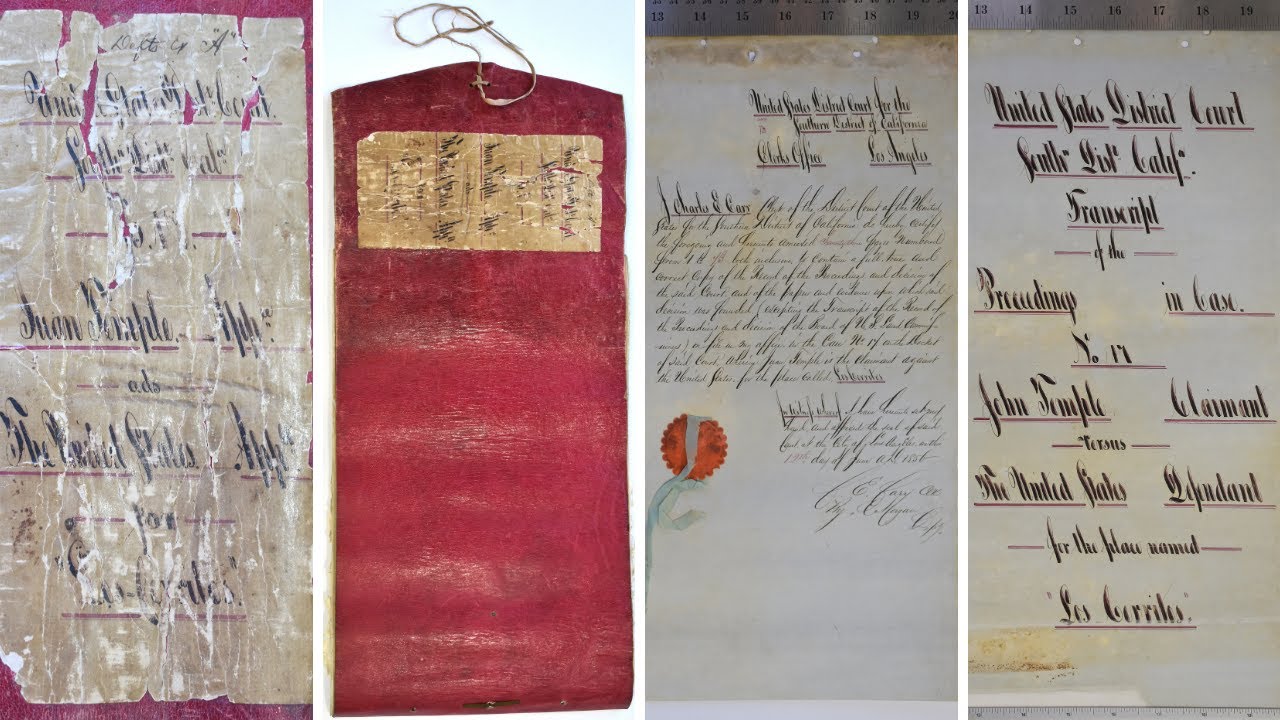 Defts Ex "A"
United States Dist Court
South Dist Cal
No 17.
Juan Temple. App.ee
ads
The United States. App.t
for
"Los Cerritos."
13 14 15 16 17 18 19 20
United States District Court for the
Southern District of California
Clerks Office Los Angeles
I Charles E Carr Clerk of the District Court of the United
States for the Southern District of California do hereby certify
the foregoing and hereunto annexed Seventy five pages Numbered
from 1 to 75 both inclusive to contain a full true and
correct Copy of the Record of the Proceedings and decision of
the said Court and of the papers and evidence upon which said
decision was founded (excepting the Transcript of the Record of
the Proceedings and decision of the Board of U S Land Commis-
sioners) on file in my office in the Case No 17 on the Docket
of said Court wherein Juan Temple is the Claimant against
the United States for the place called Los Cerritos
In testimony whereof I have hereunto set my
hand and affixed the seal of said
Court at the City of Los Angeles on the
19th day of June A.D. 1856
C E Carr Clk
Dep.
13 14 15 16 17 18 19
United States District Court
Southn Distt Califa.
Transcript
of the
Proceedings in Case.
No 17
John Temple Claimant
versus
The United States Defendant
for the place named
"Los Cerritos"